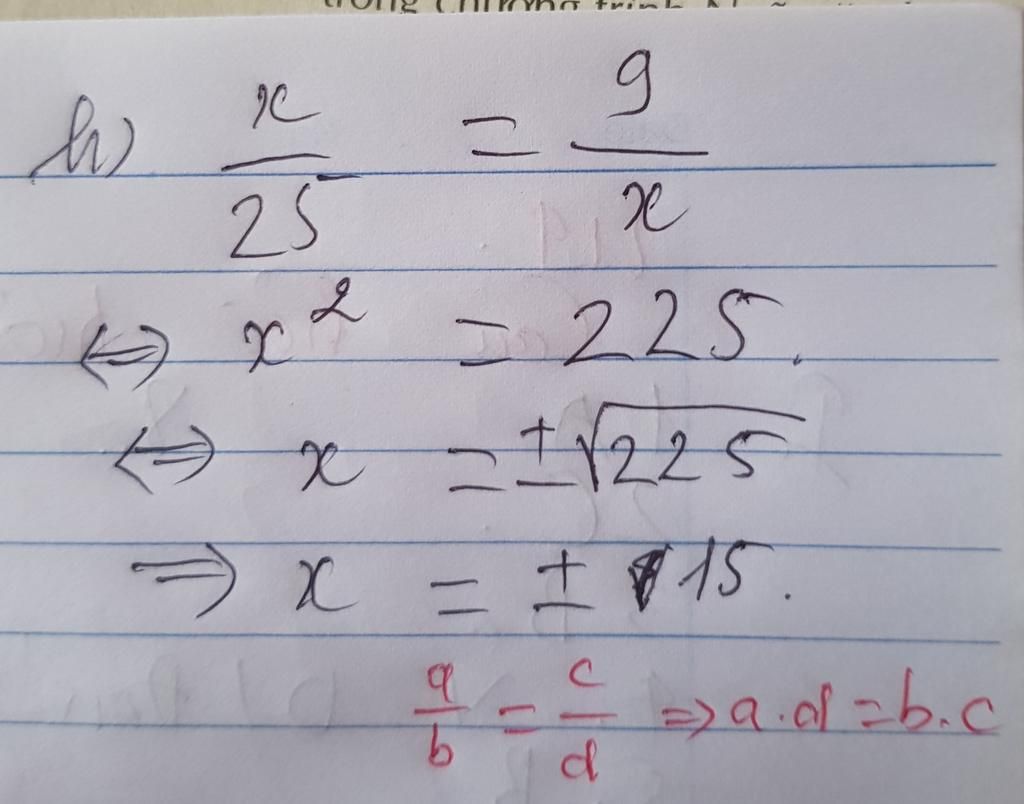 trong Chương trình
h) x/25 = 9/x
⇔ x² = 225.
⇔ x = ±√225
⇒ x = ± 15.
a/b = c/d ⇒ a.d = b.c